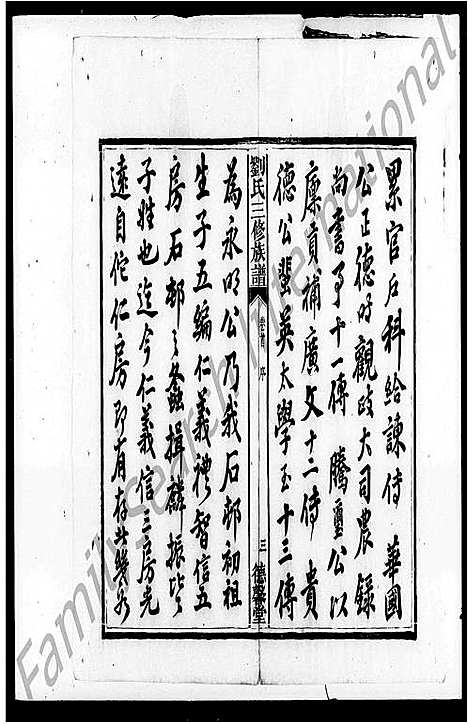 累官户科給諫侍 華國
公正德时觀政大司農錄
尚書事十一傳 騰璽公以
廩貢補廣文十二侍 貴
德公蜚英太學至十三傳
劉氏三修族譜
卷首 序
三 德馨堂
為永明公乃我石邨初祖
生子五編仁義禮智信五
房石邨之螽揖麟振皆
子姓也迄今仁義信三房克
遠自佗仁房即有存此幾
FamilySearch International